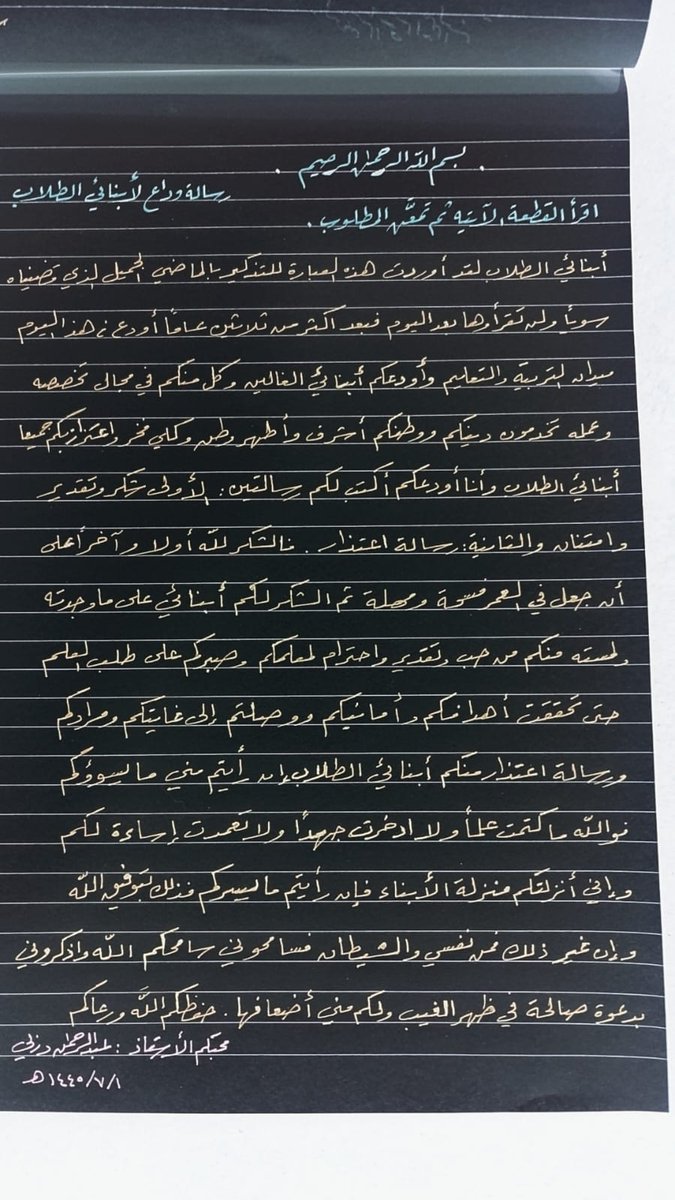 بسم الله الرحمن الرحيم .
رسالة وداع لأبنائي الطلاب
اقرأ القطعة الآتية ثم تمعَّن المطلوب .
أبنائي الطلاب لقد أوردت هذه العبارة للتذكير بالماضي الجميل الذي قضيناه
سوياً ولن تقرأوها بعد اليوم فبعد أكثر من ثلاثين عاماً أودع في هذا اليوم
ميدان التربية والتعليم وأودعكم أبنائي الغالين وكل منكم في مجال تخصصه
وعمله تخدمون دينكم ووطنكم أشرف وأطهر وطن وكلي فخر واعتزاز بكم جميعا
أبنائي الطلاب وأنا أودعكم أكتب لكم رسالتين: الأولى شكر وتقدير
وامتنان والثانية: رسالة اعتذار . فالشكر لله أولا وآخر أعلى
أن جعل في العمر فسحة ومهلة ثم الشكر لكم أبنائي على ما وجدته
ولمسته منكم من حب وتقدير واحترام لمعلمكم وصبركم على طلب العلم
حتى تحققت أهدافكم وأمانيكم ووصلتم إلى غايتكم ومرادكم
ورسالة اعتذار منكم أبنائي الطلاب إن رأيتم مني ما يسوؤكم
فوالله ما كتمت علماً ولا ادخرت جهداً ولا تعمدت إساءة لكم
وإني أنزلتكم منزلة الأبناء فإن رأيتم ما يسركم فذلك بتوفيق الله
وإن غير ذلك فمن نفسي والشيطان فسامحوني سامحكم الله واذكروني
بدعوة صالحة في ظهر الغيب ولكم مني أضعافها . حفظكم اللَّه ورعاكم
محبكم الأستاذ : عبدالرحمن دزلي
١٤٤٥/٧/١هـ